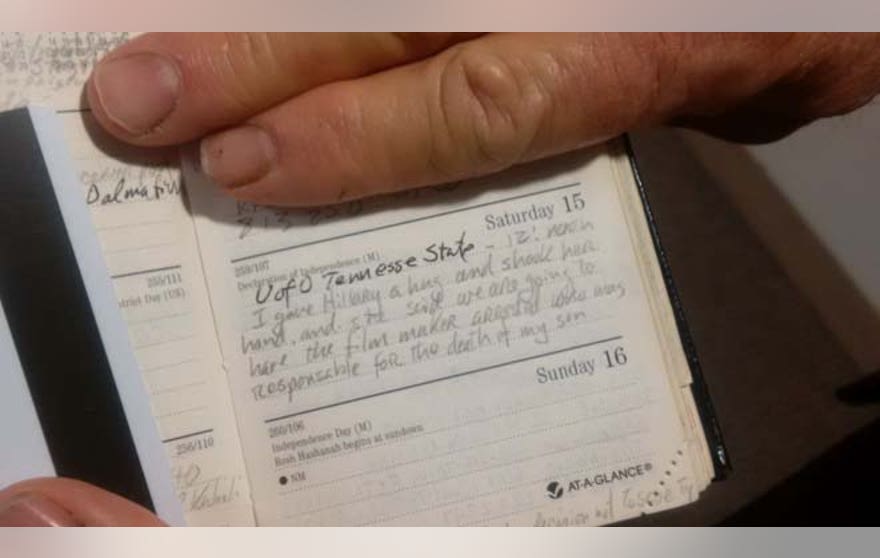 Dalmatin
255/111
256/110
Saturday 15
259/107
Declaration of Independence (M)
UofO Tennesse State - 12: noon
I gave Hillary a hug and shook her
hand. and she said we are going to
have the film maker arrested who was
responsable for the death of my son
Sunday 16
260/106
Independence Day (M)
Rosh Hashanah begins at sundown
NM
AT-A-GLANCE®
decision not